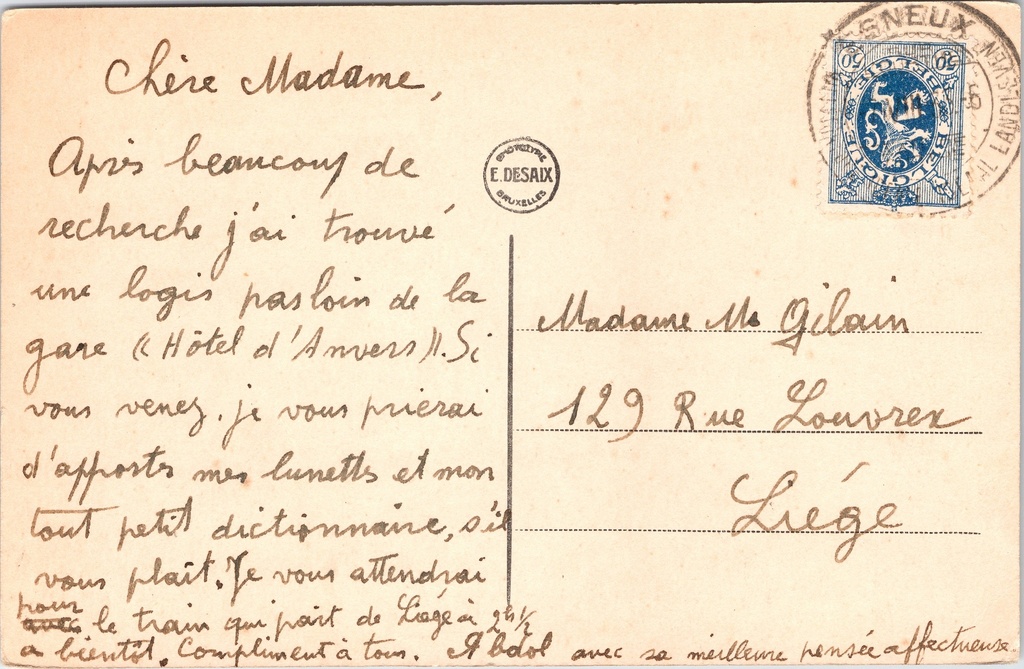 Chère Madame,
Après beaucoup de
recherche j'ai trouvé
une logis pas loin de la
gare «Hôtel d'Anvers». Si
vous venez, je vous prierai
d'apporter mes lunettes et mon
tout petit dictionnaire, s'il
vous plaît. Je vous attendrai
pour
avec le train qui part de Liége à 2h 1/2
a bientôt. Compliment à tous. Abdol avec sa meilleure pensée affectueuse.
PHOTOTYPIE
E. DESAIX
BRUXELLES
ESNEUX
50 50
BELGIQUE BELGIE
Madame Me Gilain
129 Rue Louvrex
Liége